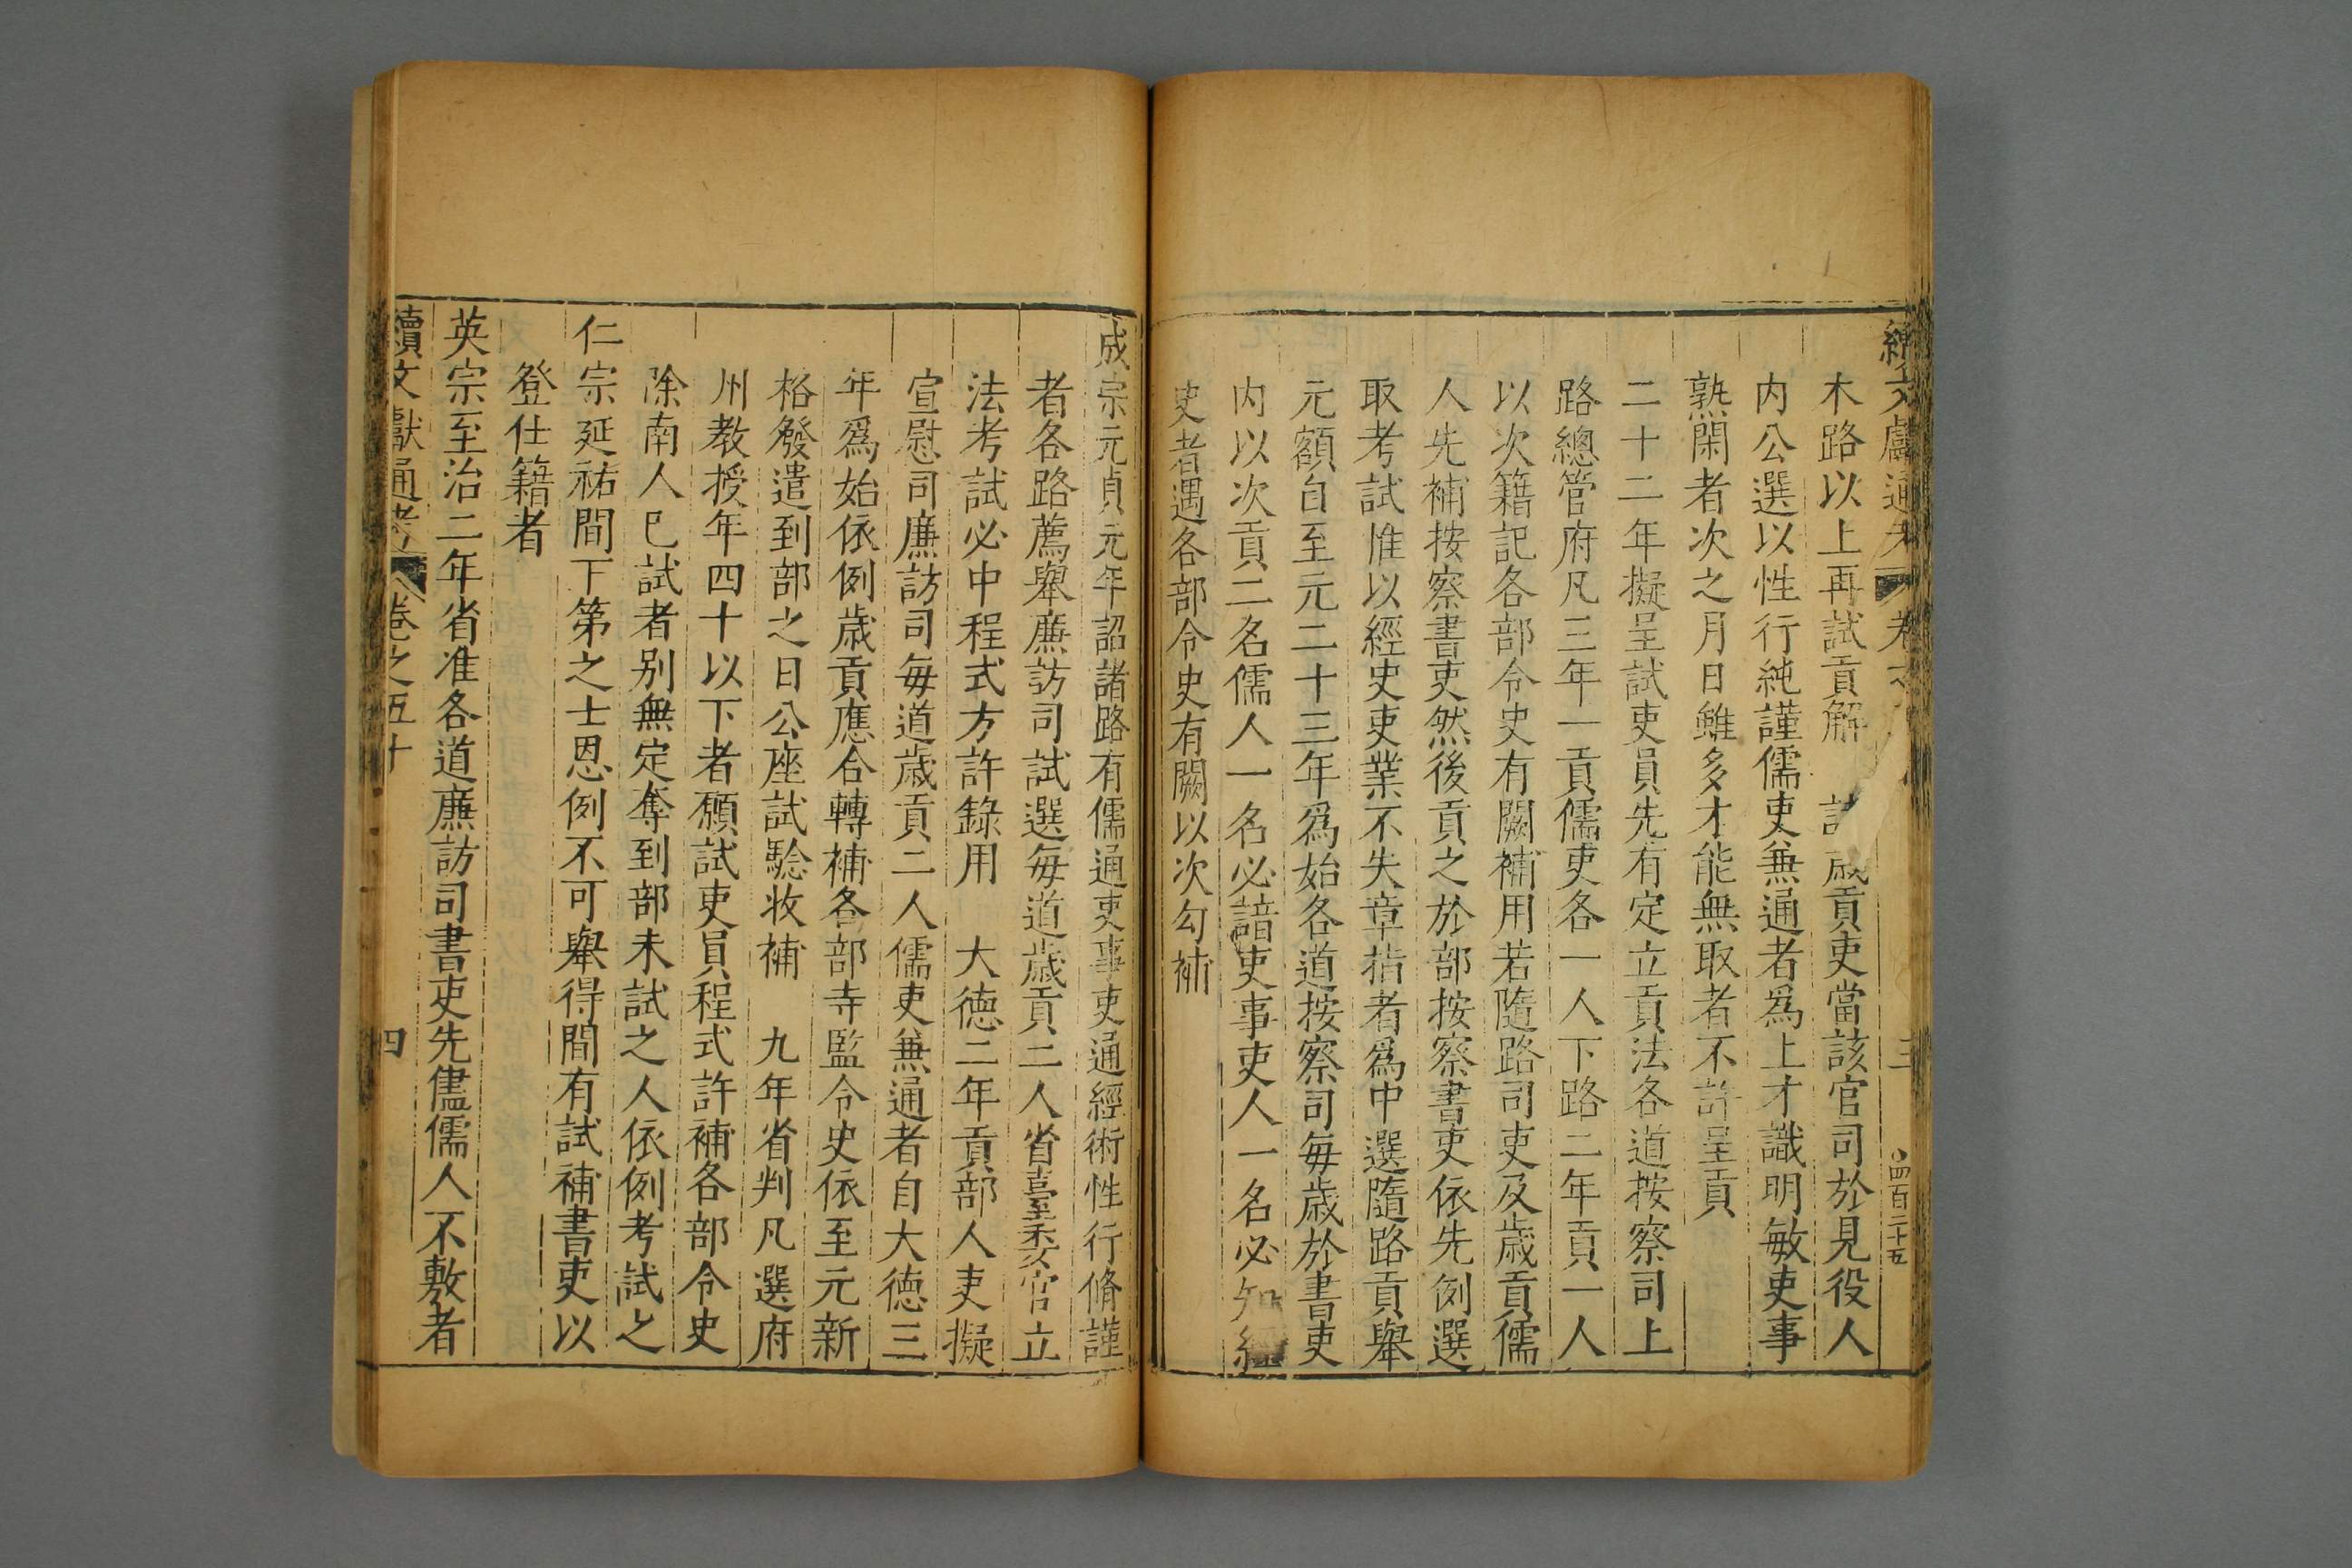 續文獻通考 卷之 三 四百二十五
木路以上再試貢解 諸歲貢吏當該官司於見役人
内公選以性行純謹儒吏兼通者爲上才識明敏吏事
熟閑者次之月日雖多才能無取者不許呈貢
二十二年擬呈試吏員先有定立貢法各道按察司上
路總管府凡三年一貢儒吏各一人下路二年貢一人
以次籍記各部令史有闕補用若隨路司吏及歲貢儒
人先補按察書吏然後貢之於部按察書吏依先例選
取考試惟以經史吏業不失章指者爲中選隨路貢舉
元額自至元二十三年爲始各道按察司每歲於書吏
内以次貢二名儒人一名必諳吏事吏人一名必知經
史者遇各部令史有闕以次勾補
成宗元貞元年詔諸路有儒通吏事吏通經術性行脩謹
者各路薦舉廉訪司試選每道歲貢二人省臺委官立
法考試必中程式方許錄用 大德二年貢部人吏擬
宣慰司廉訪司每道歲貢二人儒吏兼通者自大德三
年爲始依例歲貢應合轉補各部寺監令史依至元新
格發遣到部之日公座試驗收補 九年省判凡選府
州教授年四十以下者願試吏員程式許補各部令史
除南人已試者别無定奪到部未試之人依例考試之
仁宗延祐間下第之士恩例不可舉得間有試補書吏以
登仕籍者
英宗至治二年省准各道廉訪司書吏先儘儒人不敷者
續文獻通考 卷之五十 四